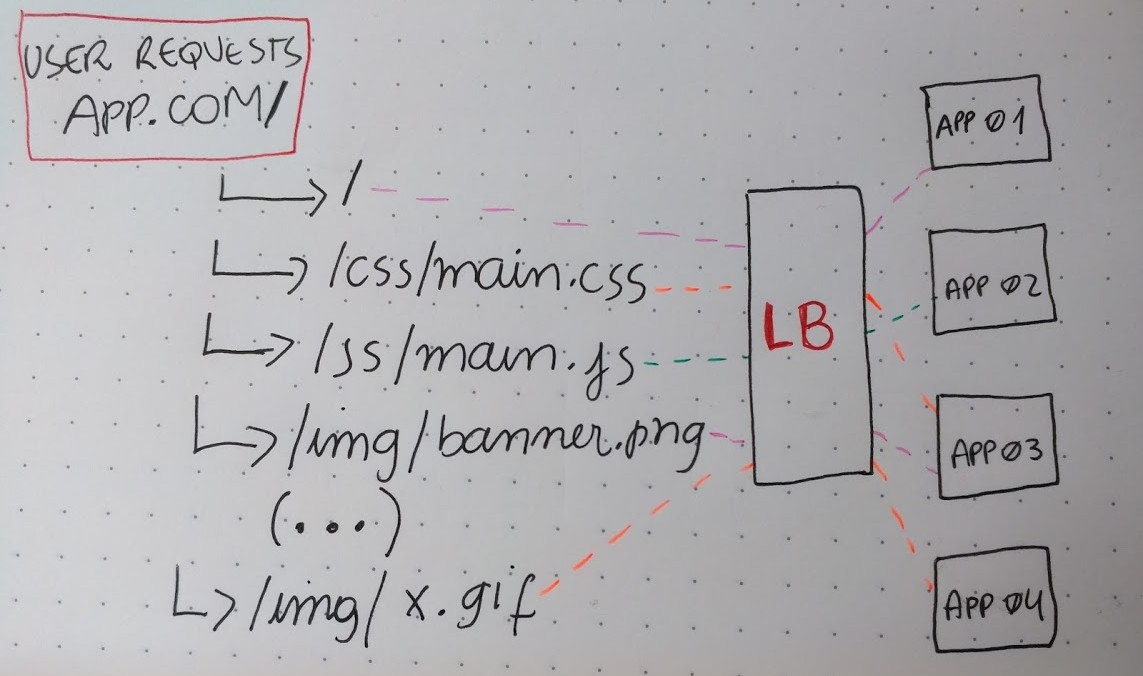 USER REQUESTS
APP.COM/
/
/css/main.css
/js/main.js
/img/banner.png
(...)
/img/x.gif
LB
APP 01
APP 02
APP 03
APP 04